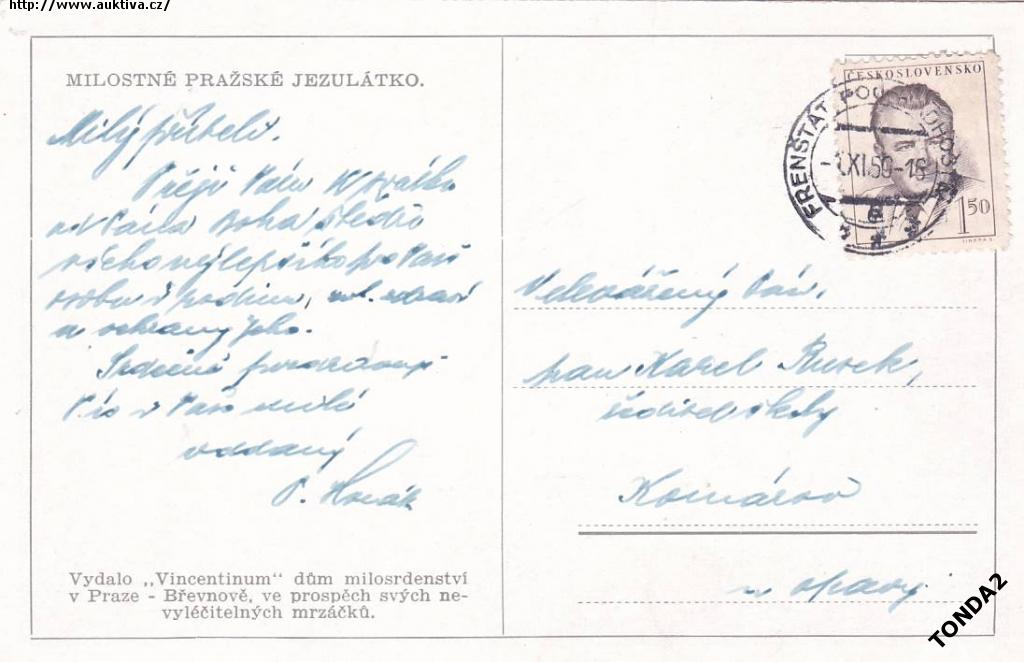 http://www.auktiva.cz/
MILOSTNÉ PRAŽSKÉ JEZULÁTKO.
Milý příteli.
Přeji Vám
od Pána Boha štědře
všeho nejlepšího pro Vaši
osobu i rodinu, zdraví
a ochrany Jeho.
Srdečně pozdravuji
Vás i Vaše milé
oddaný
P. Horák
Vydalo „Vincentinum“ dům milosrdenství
v Praze - Břevnově, ve prospěch svých ne-
vyléčitelných mrzáčků.
ČESKOSLOVENSKO
1 50
FRENŠTÁT POD RADHOŠTĚM
XI.50-16
Velevážený Pán,
pan Karel
řiditel školy
Komárov
u Opavy
TONDA2